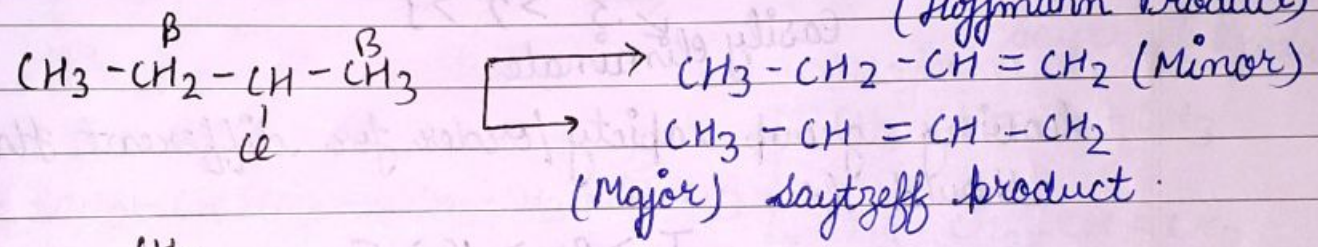 (Hoffmann Product)
β β
CH3 - CH2 - CH - CH3 → CH3 - CH2 - CH = CH2 (Minor)
Cl → CH3 - CH = CH - CH2
(Major) Saytzeff product.